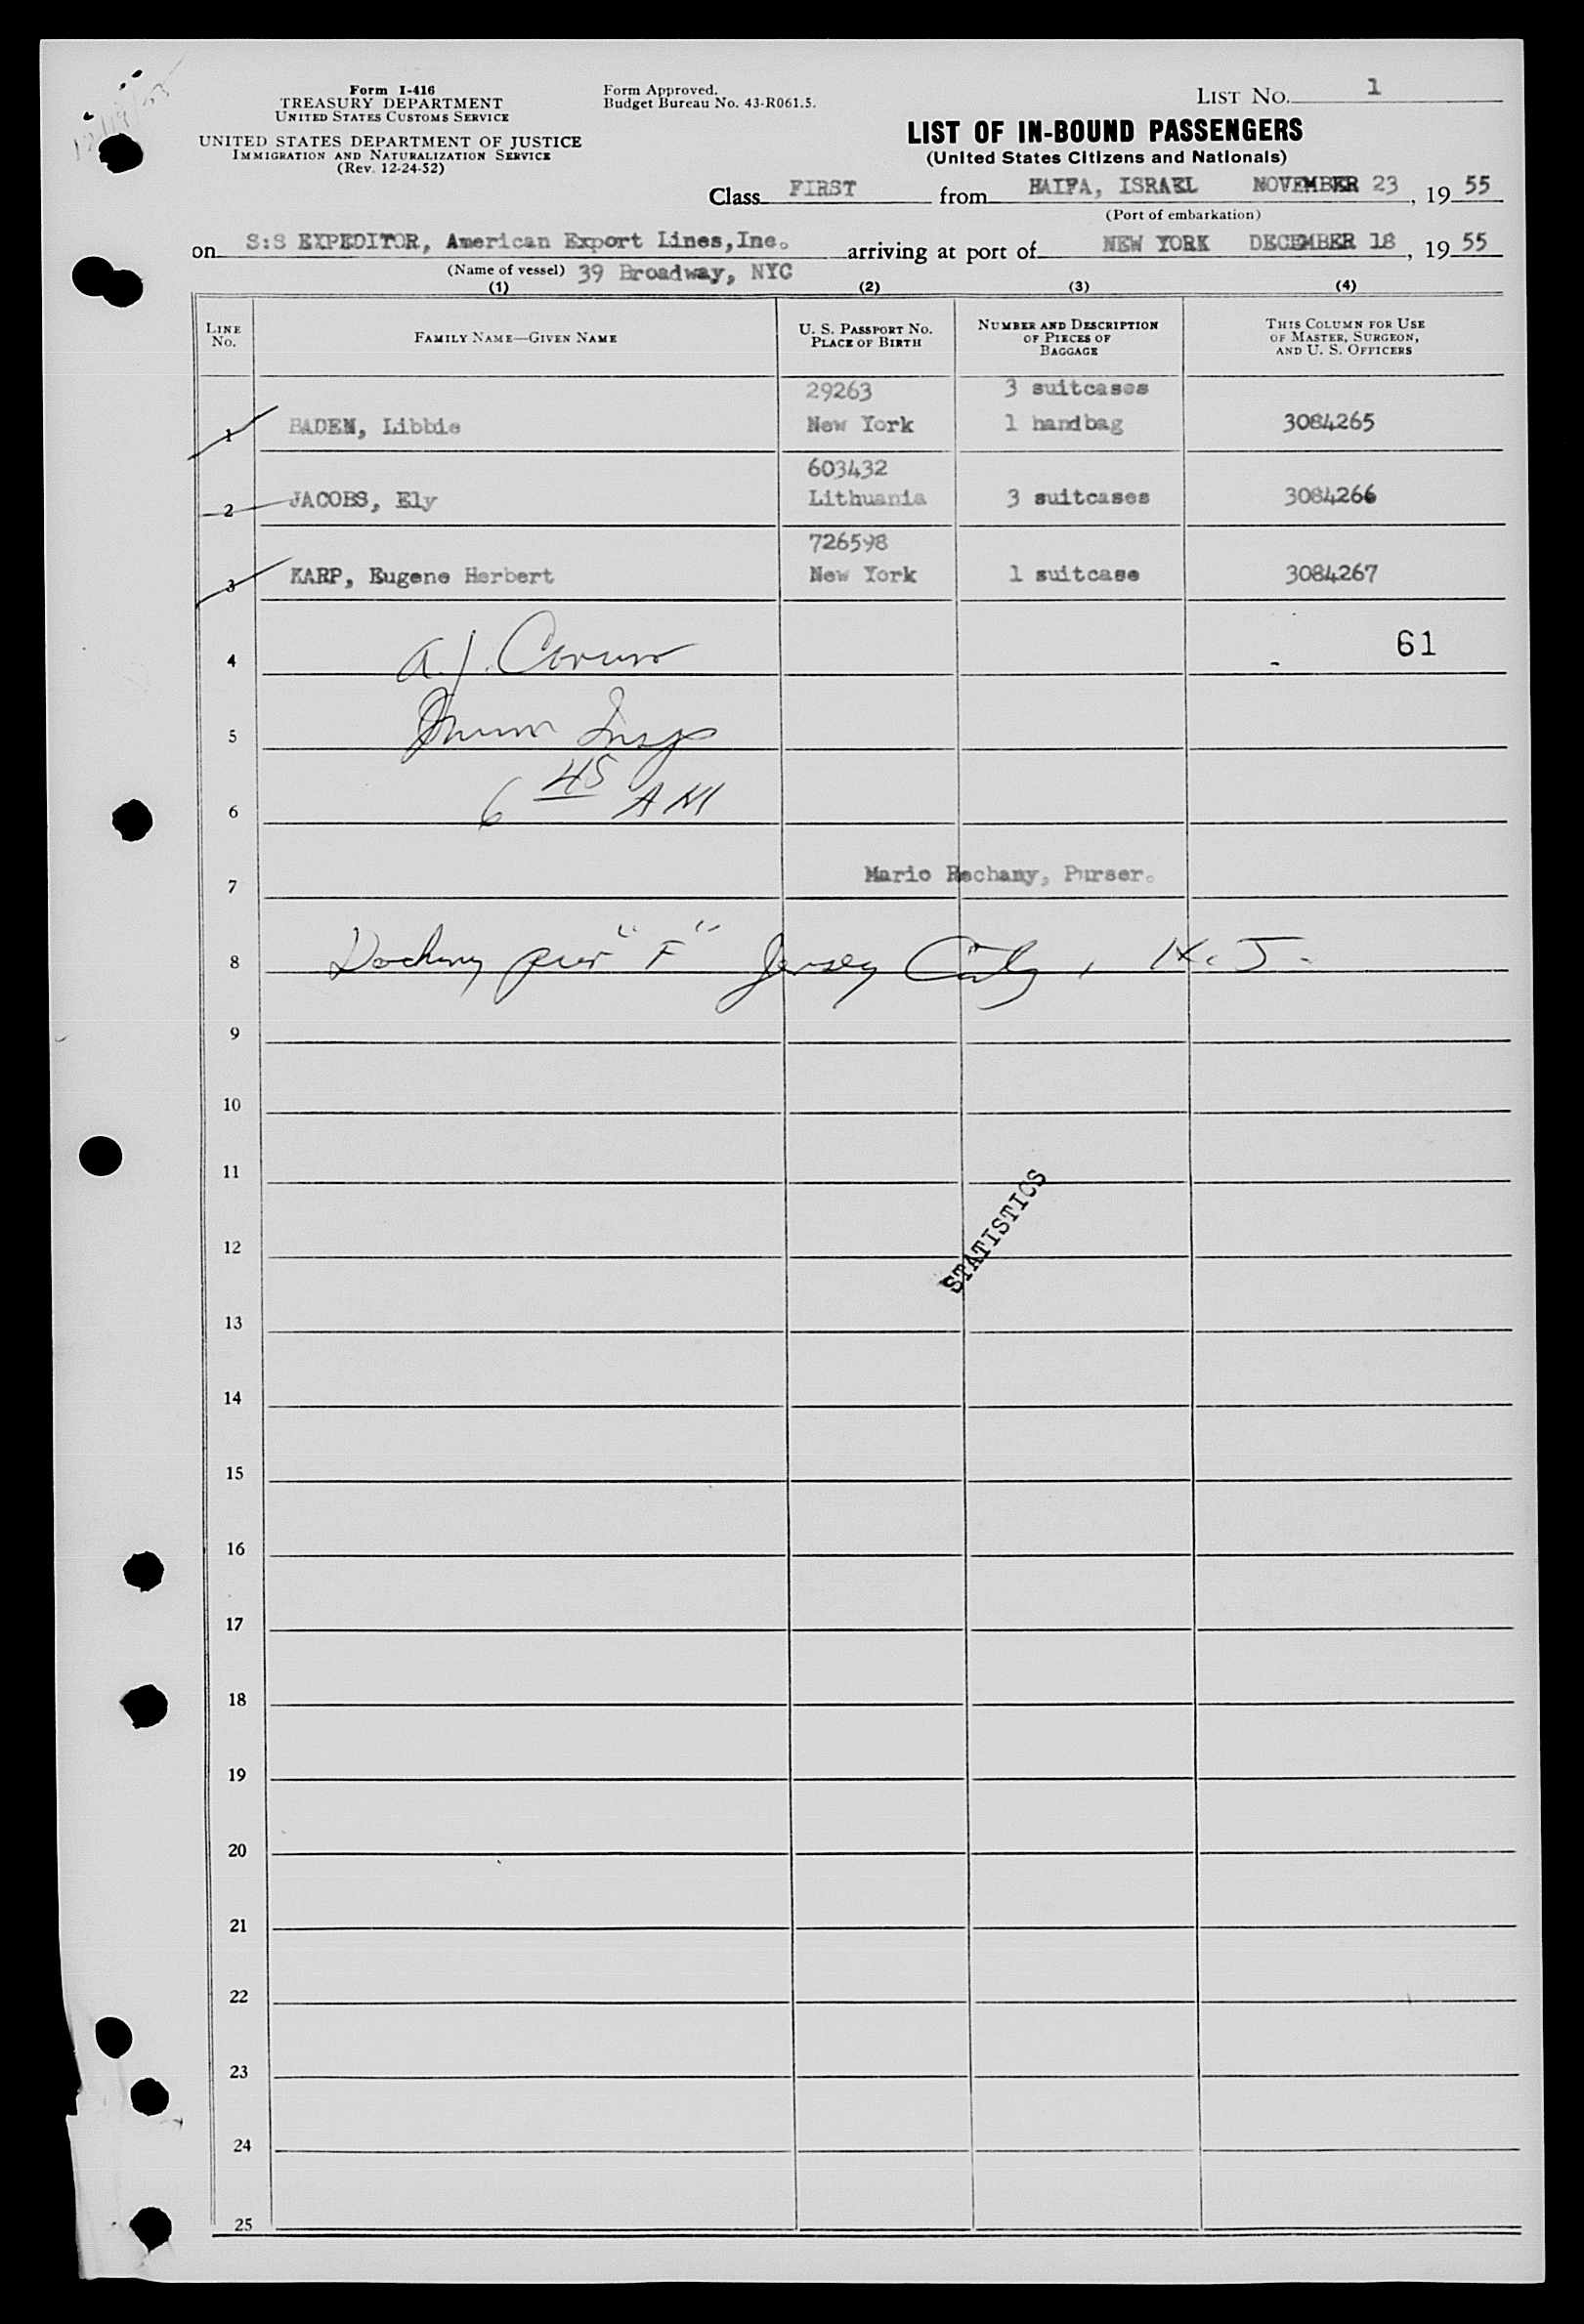 Form I-416
TREASURY DEPARTMENT
UNITED STATES CUSTOMS SERVICE
UNITED STATES DEPARTMENT OF JUSTICE
IMMIGRATION AND NATURALIZATION SERVICE
(Rev. 12-24-52)
Form Approved.
Budget Bureau No. 43-R061.5.
LIST NO. 1
LIST OF IN-BOUND PASSENGERS
(United States Citizens and Nationals)
Class FIRST from HAIFA, ISRAEL NOVEMBER 23, 19 55
(Port of embarkation)
on S:S EXPEDITOR, American Export Lines,Inc. arriving at port of NEW YORK DECEMBER 18, 19 55
(Name of vessel) 39 Broadway, NYC
(1) (2) (3) (4)
LINE NO.
FAMILY NAME—GIVEN NAME
U. S. PASSPORT NO.
PLACE OF BIRTH
NUMBER AND DESCRIPTION
OF PIECES OF
BAGGAGE
THIS COLUMN FOR USE
OF MASTER, SURGEON,
AND U. S. OFFICERS
29263 3 suitcases
1 BADEN, Libbie New York 1 handbag 3084265
603432
2 JACOBS, Ely Lithuania 3 suitcases 3084266
726598
3 KARP, Eugene Herbert New York 1 suitcase 3084267
4 A. J. 61
5 Insp
6 6 45 AM
7 Mario Rechany, Purser.
8 Docking pier "F" Jersey City, N. J.
9
10
11
STATISTICS
12
13
14
15
16
17
18
19
20
21
22
23
24
25